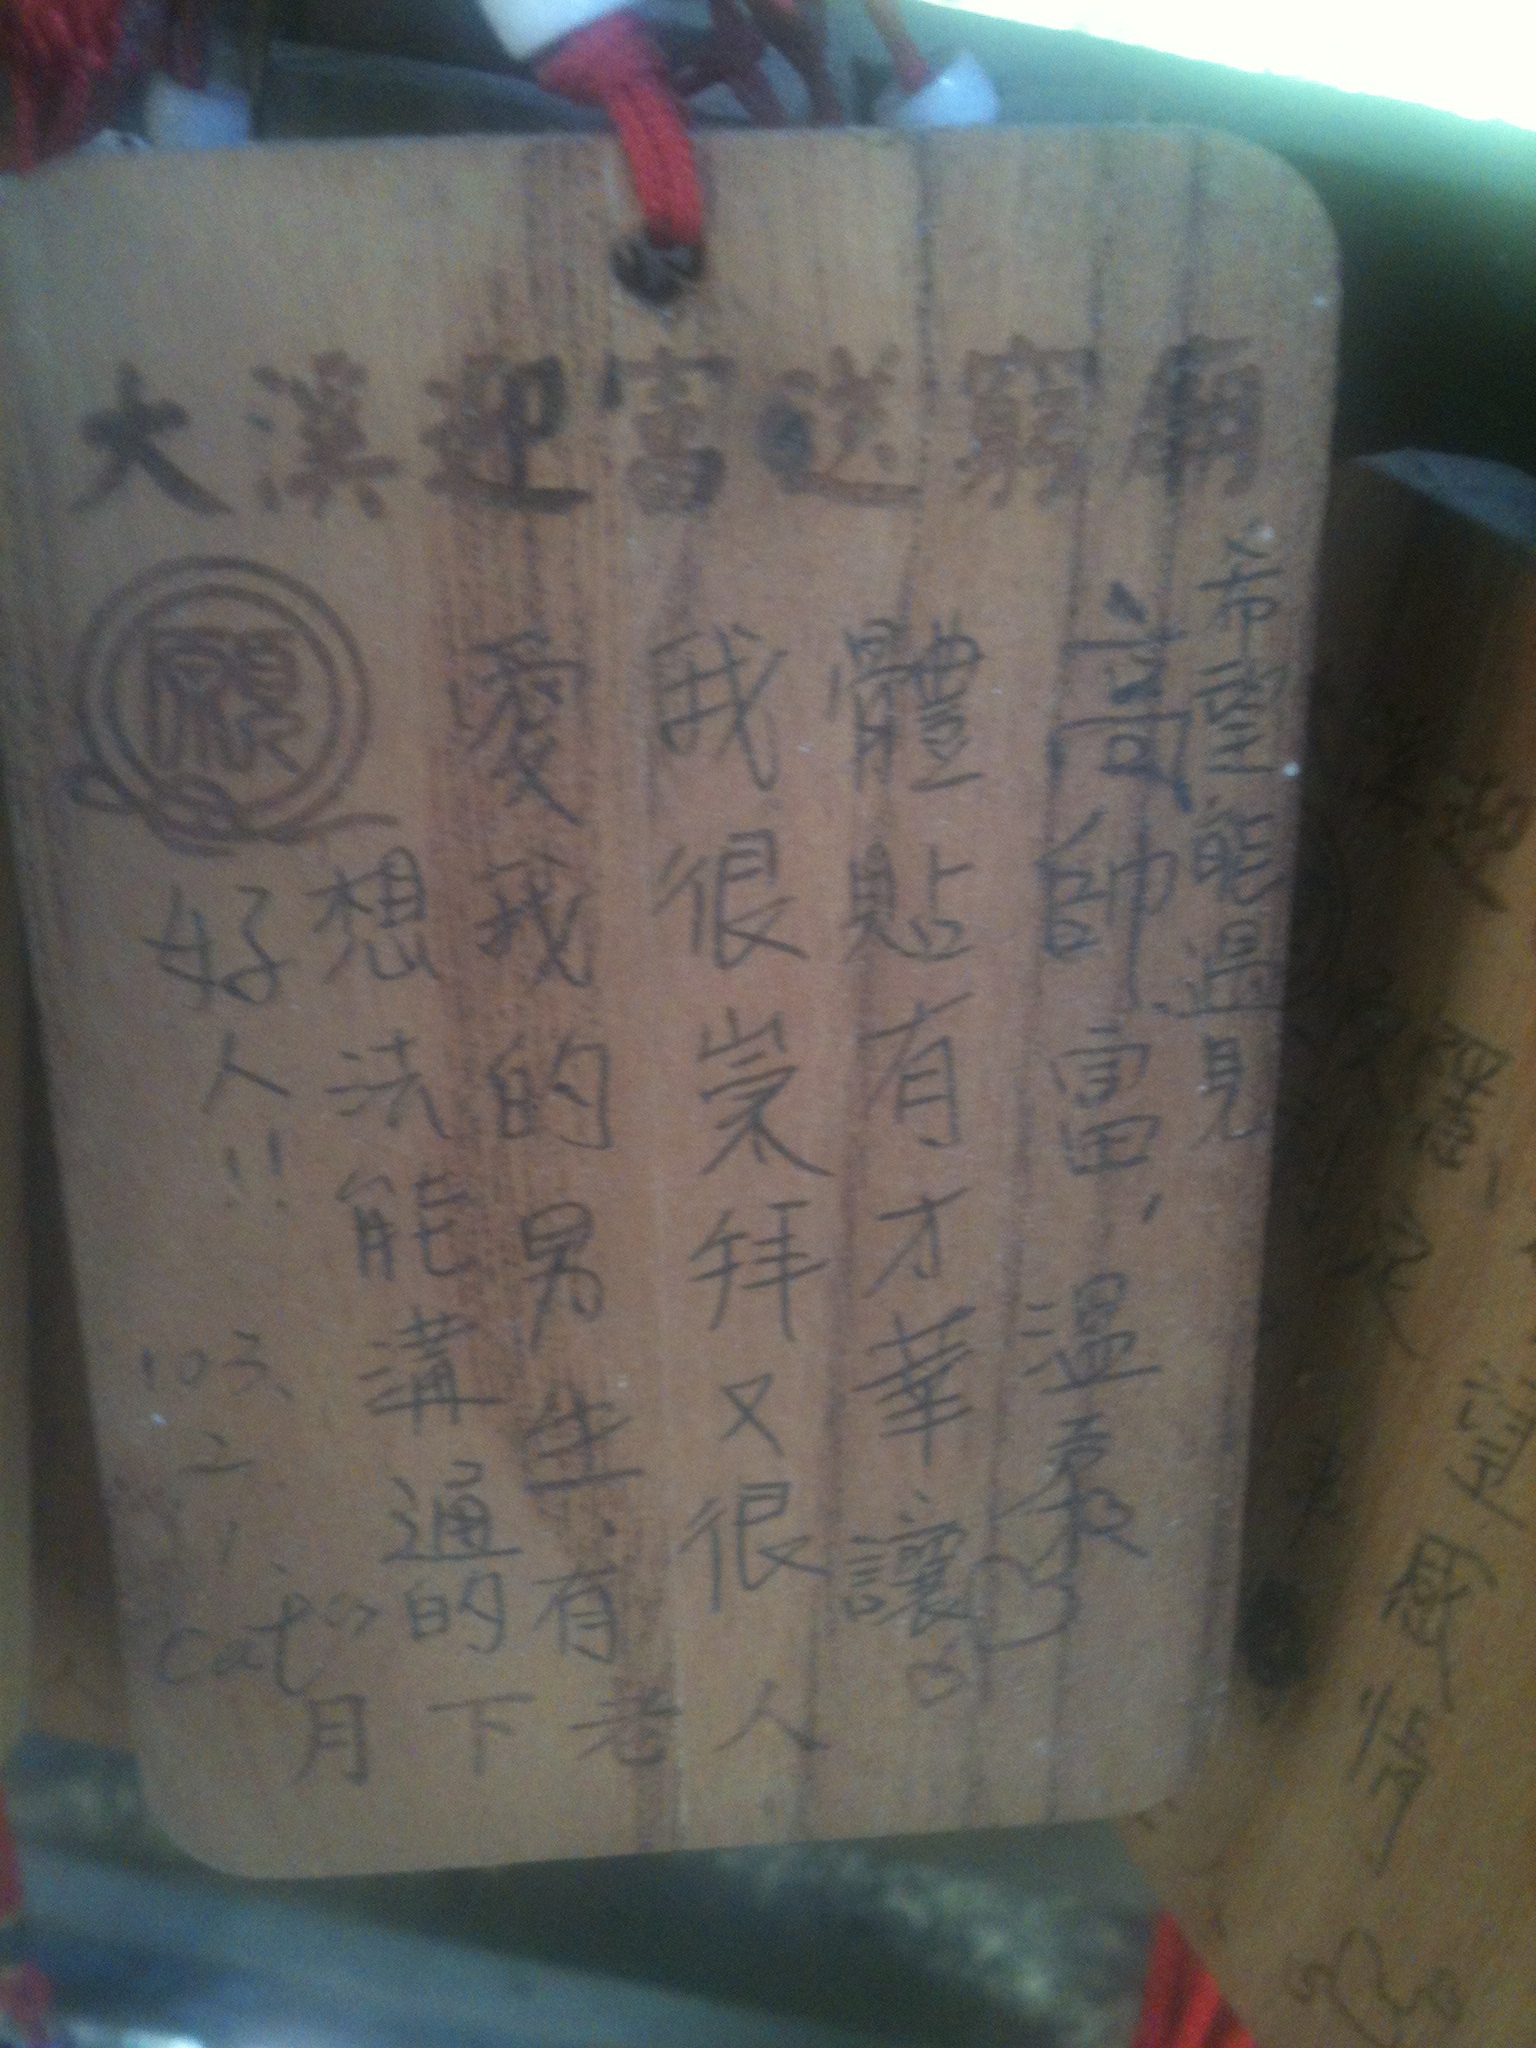 大溪迎富送窮廟
願
希望能遇見
高帥富，溫柔
體貼有才華讓
我很崇拜又很
愛我的男生.有
想法能溝通的
好人!!
103.
2.
1.
cat
月下老人